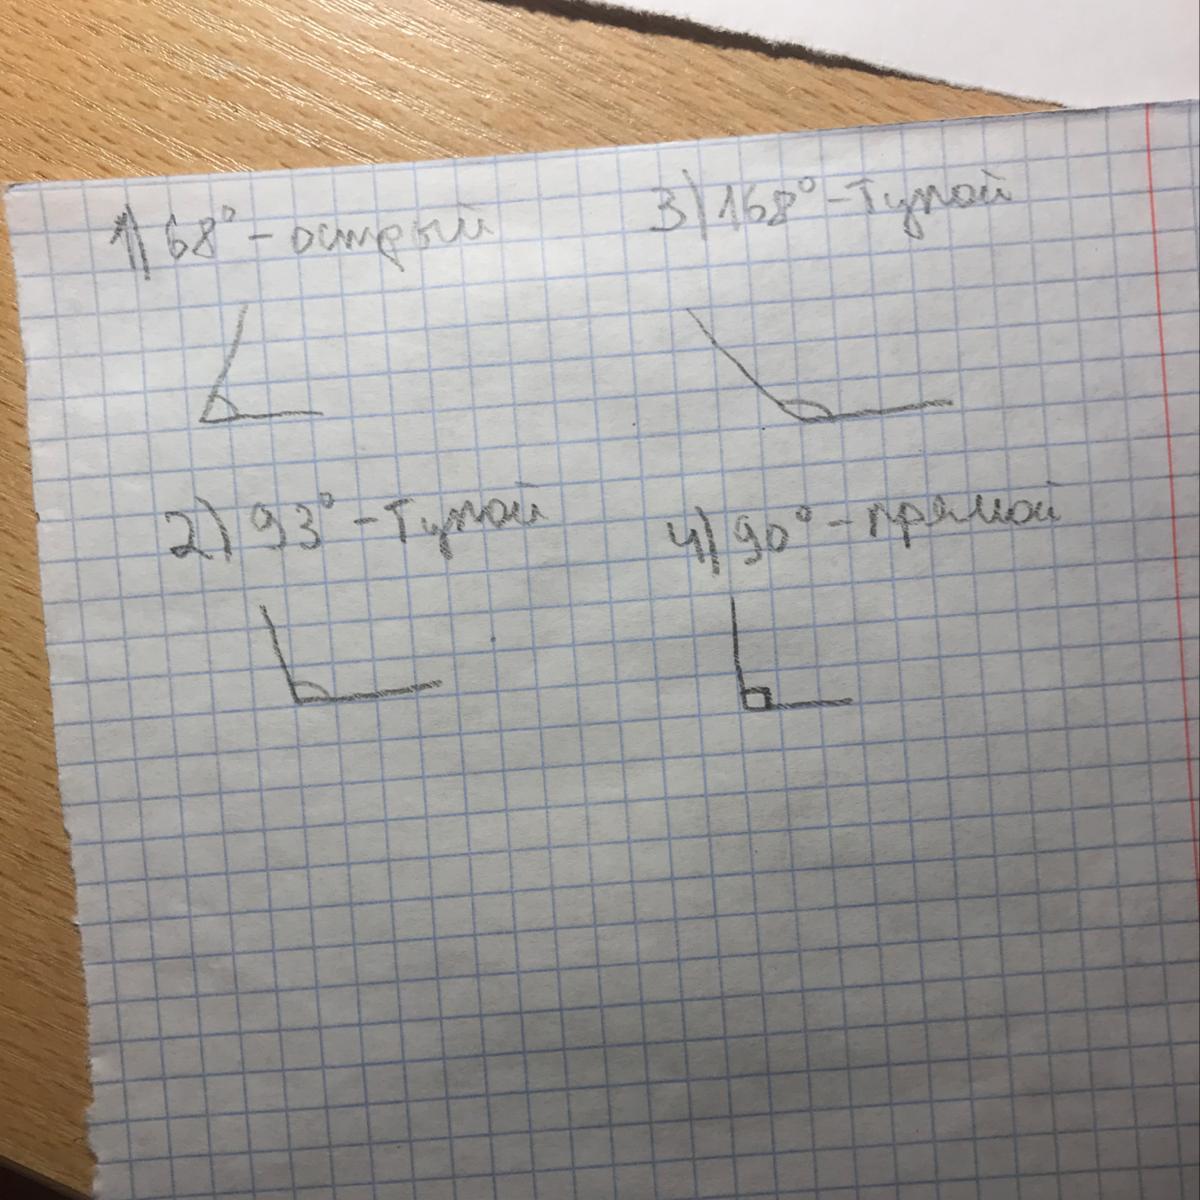 1) 68° - острый
3) 168° - Тупой
2) 93° - Тупой
4) 90° - прямой